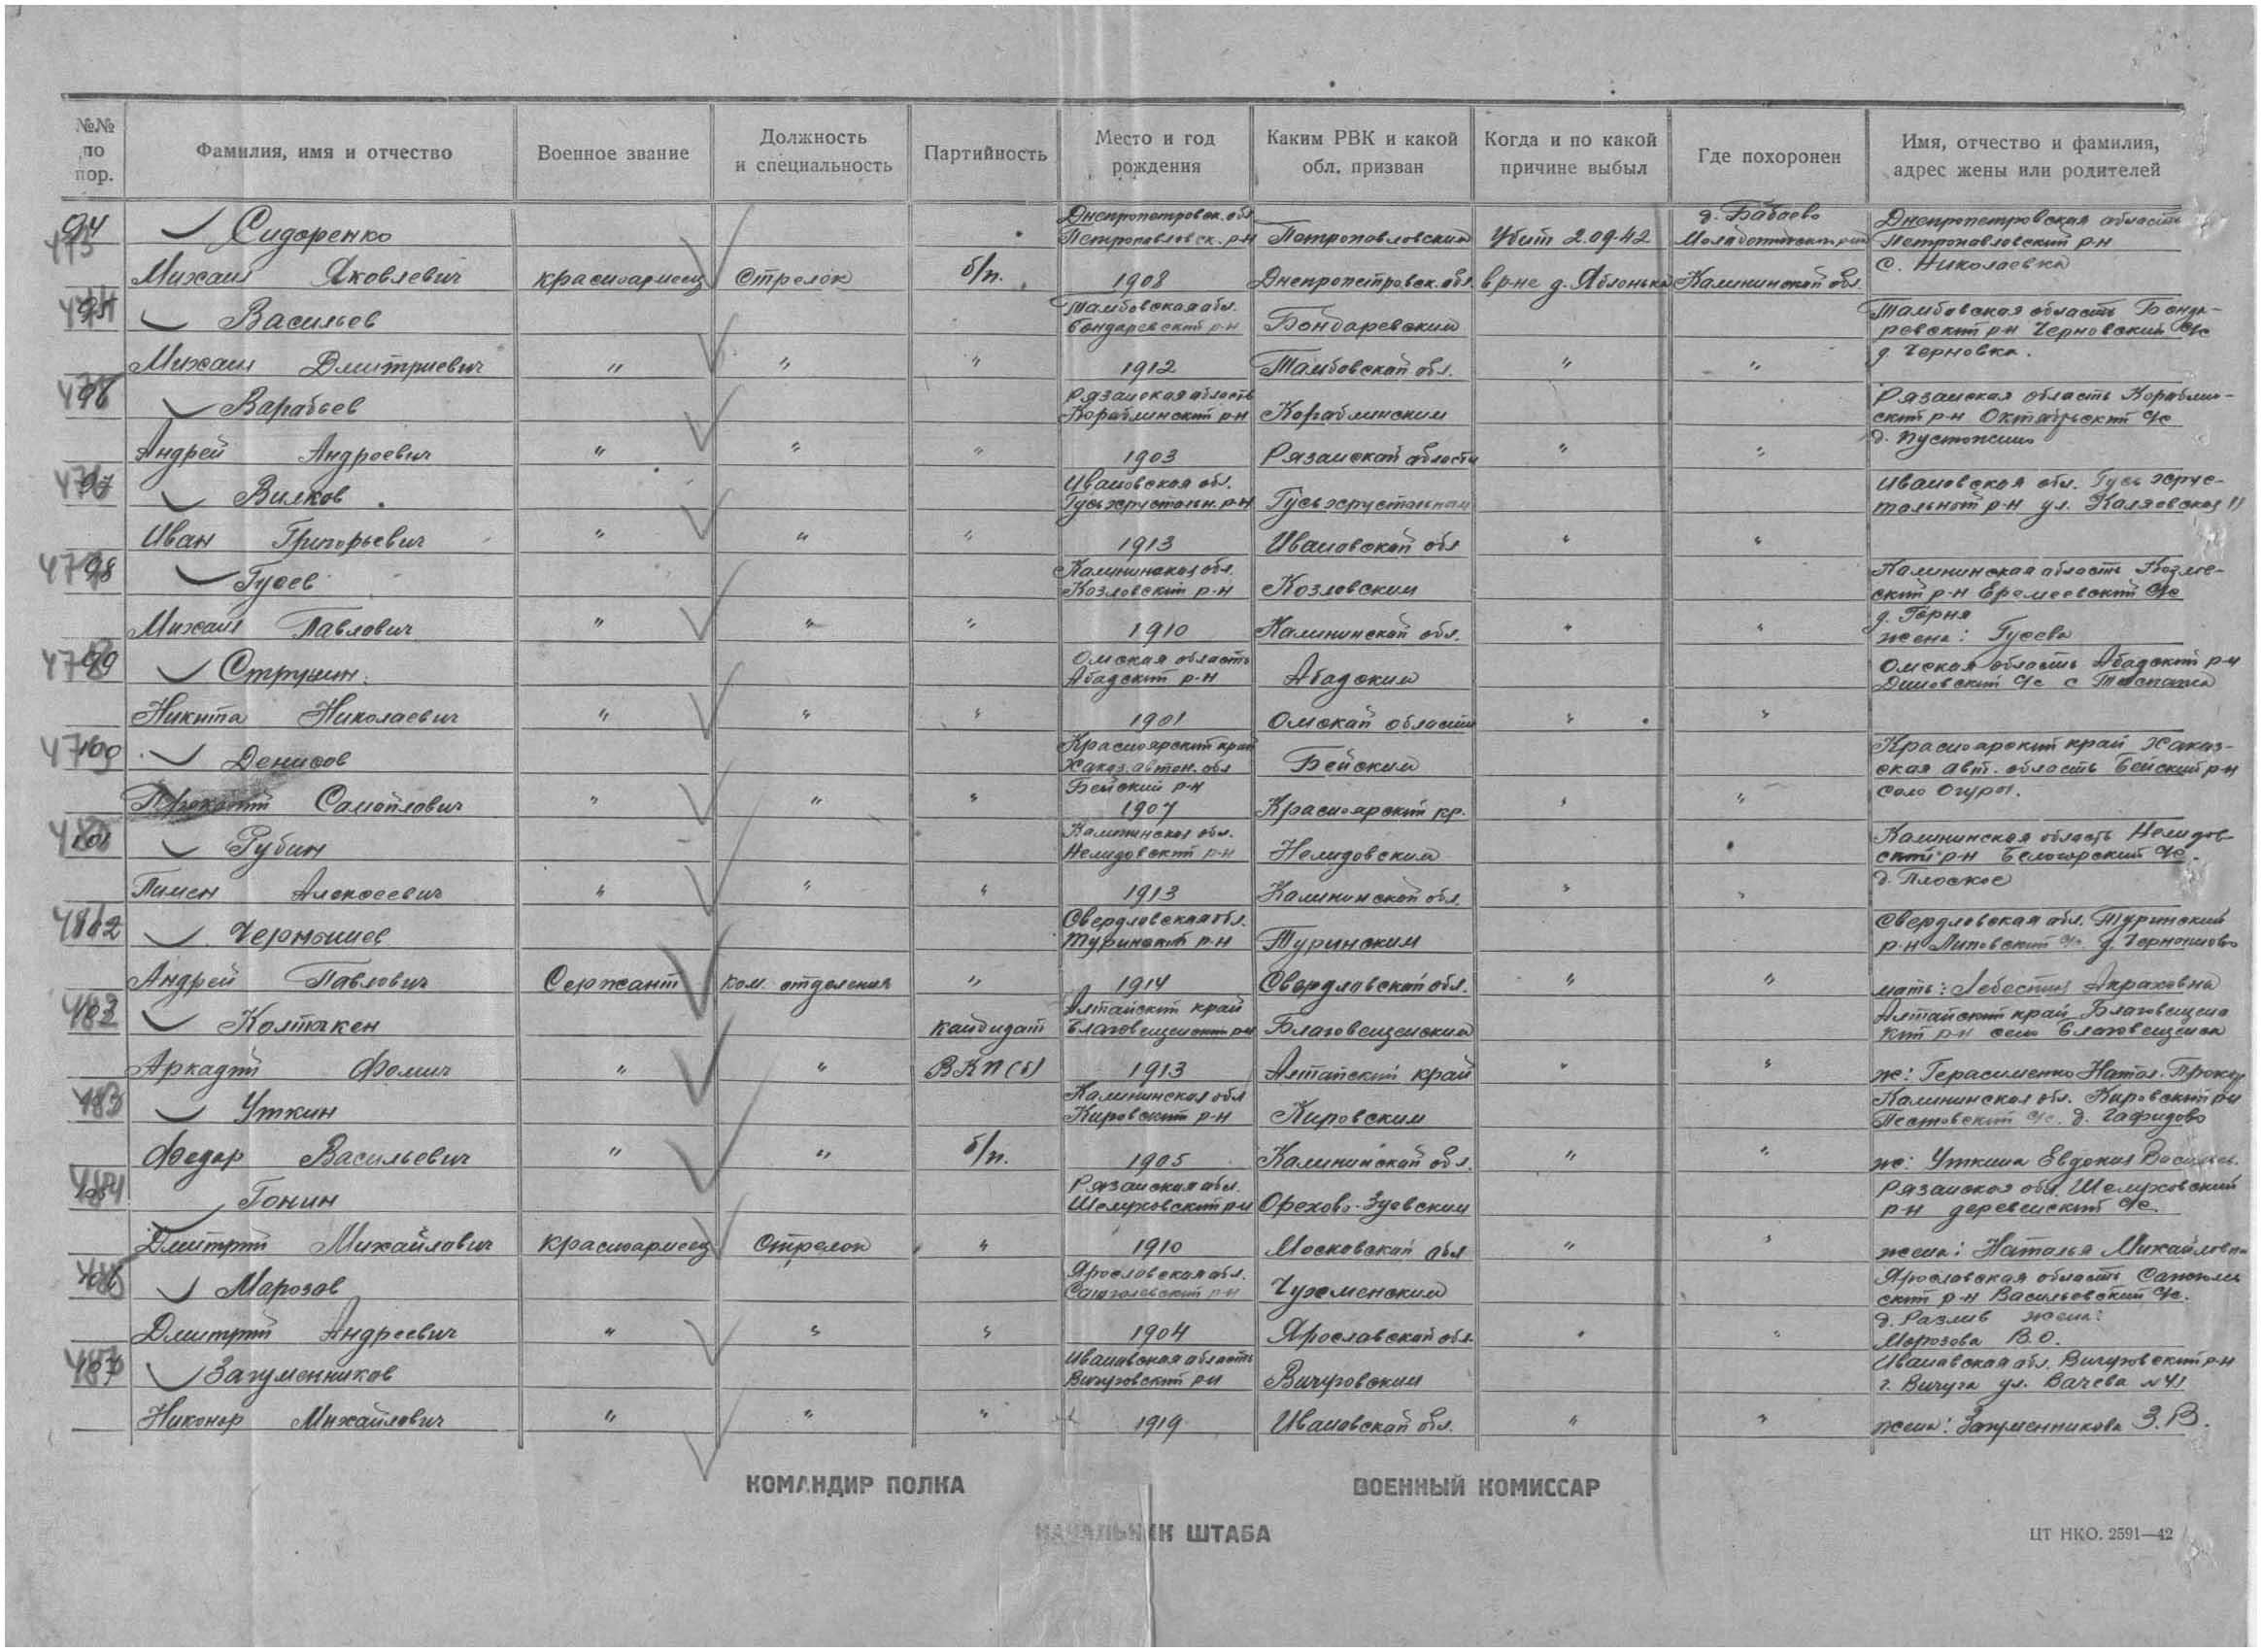 №№ по пор.
Фамилия, имя и отчество
Военное звание
Должность и специальность
Партийность
Место и год рождения
Каким РВК и какой обл. призван
Когда и по какой причине выбыл
Где похоронен
Имя, отчество и фамилия, адрес жены или родителей
94 Сидоренко Днепропетровск. обл. Петропавловск. р-н Петропавловским Убит 2.09.42 д. Бабаево Днепропетровская область Петропавловский р-н
Михаил Яковлевич красноармеец Стрелок б/п. 1908 Днепропетровск. обл. в р-не д. Яблонька Калининской обл. с. Николаевка
95 Васильев Тамбовская обл. Бондаревский р-н Бондаревским Тамбовская область Бонда-
ревский р-н Черновский с/с
Михаил Дмитриевич " " " 1912 Тамбовской обл. " " д. Черновка.
96 Варабьев Рязанская область Кораблинский р-н Кораблинским Рязанская область Кораблин-
ский р-н Октябрьский с/с
Андрей Андреевич " " " 1903 Рязанской области " " д.
97 Вилков Ивановская обл. Гусьхрустальн. р-н Гусьхрустальным Ивановская обл. Гусь хрус-
тальный р-н ул.
Иван Григорьевич " " " 1913 Ивановской обл " "
98 Гусев Калининская обл. Козловский р-н Козловским Калининская область Козлов-
ский р-н Еремеевский с/с
Михаил Павлович " " " 1910 Калининской обл. " " д. Горня
жена: Гусева
99 Струнин Омская область Абадский р-н Абадским Омская область Абадский р-н
с/с с
Никита Николаевич " " " 1901 Омской области " "
100 Денисов Красноярский край Хаказ. автон. обл Бейский р-н Бейским Красноярский край Хаказ-
ская авт. область Бейский р-н
Самойлович " " " 1907 Красноярский кр. " " село Огуры.
101 Рубин Калининская обл. Нелидовский р-н Нелидовским Калининская область Нелидов-
ский р-н Белогорский с/с.
Пимен Алексеевич " " " 1913 Калининской обл. " " д. Плоское
102 Чернышев Свердловская обл. Туринский р-н Туринским Свердловская обл. Туринский
р-н Липовский с/с. д.
Андрей Павлович Сержант ком. отделения " 1914 Свердловской обл. " " мать:
103 кандидат Алтайский край Благовещенский р-н Благовещенским Алтайский край Благовещенс
кий р-н село Благовещенка
Аркадий Фомич " " ВКП(б) 1913 Алтайский край " " ж: Герасименко Натал. Прокоф
Уткин Калининская обл Кировский р-н Кировским Калининская обл. Кировский р-н
Пестовский с/с. д.
Федор Васильевич " " б/п. 1905 Калининской обл. " " ж: Уткина Евдокия Васильев.
Гонин Рязанская обл. Шелуховский р-н Орехово-Зуевским Рязанская обл. Шелуховский
р-н деревенский с/с.
Дмитрий Михайлович красноармеец Стрелок " 1910 Московской обл " " жена: Наталья Михайловна
Марозов Ярославская обл. Ярославская область
ский р-н Васильевский с/с.
д. Разлив жена:
Дмитрий Андреевич " " " 1904 Ярославской обл. " " Морозова В.О.
107 Загуменников Ивановская область Вичуговский р-н Вичуговским Ивановская обл. Вичуговский р-н
г. Вичуга ул. №41
Никонор Михайлович " " " 1919 Ивановской обл. " " жена: Загуменникова З.В.
КОМАНДИР ПОЛКА
ВОЕННЫЙ КОМИССАР
НАЧАЛЬНИК ШТАБА
ЦТ НКО. 2591—42